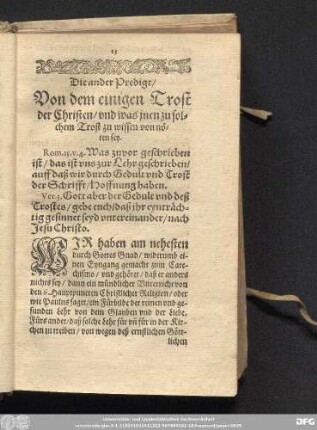 13
Die ander Predigt/
Von dem einigen Trost
der Christen/ vnd was jnen zu sol-
chem Trost zu wissen von nö-
ten sey.
Rom.15.v.4. Was zuvor geschrieben
ist/ das ist vns zur Lehr geschrieben/
auff daß wir durch Gedult vnd Trost
der Schrifft/ Hoffnung haben.
Ver.5. Gott aber der Gedult vnd deß
Trostes/ gebe euch/ daß jhr eynträch-
tig gesinnet seyd vntereinander/ nach
Jesu Christo.
WIR haben am nehesten
durch Gottes Gnad/ widerumb ei-
nen Eyngang gemacht zum Cate-
chismo/ vnd gehöret/ daß er anders
nichts sey/ dann ein mündlicher Vnterricht von
den Hauptpuncten Christlicher Religion/ oder
wie Paulus sagt/ ein Fürbilde der reinen vnd ge-
sunden Lehr von dem Glauben vnd der Liebe.
Fürs ander/ daß solche Lehr für vn̄ für in der Kir-
chen zu treiben/ von wegen deß ernstlichen Gött-
lichen
Universitäts- und Landesbibliothek Sachsen-Anhalt
DFG